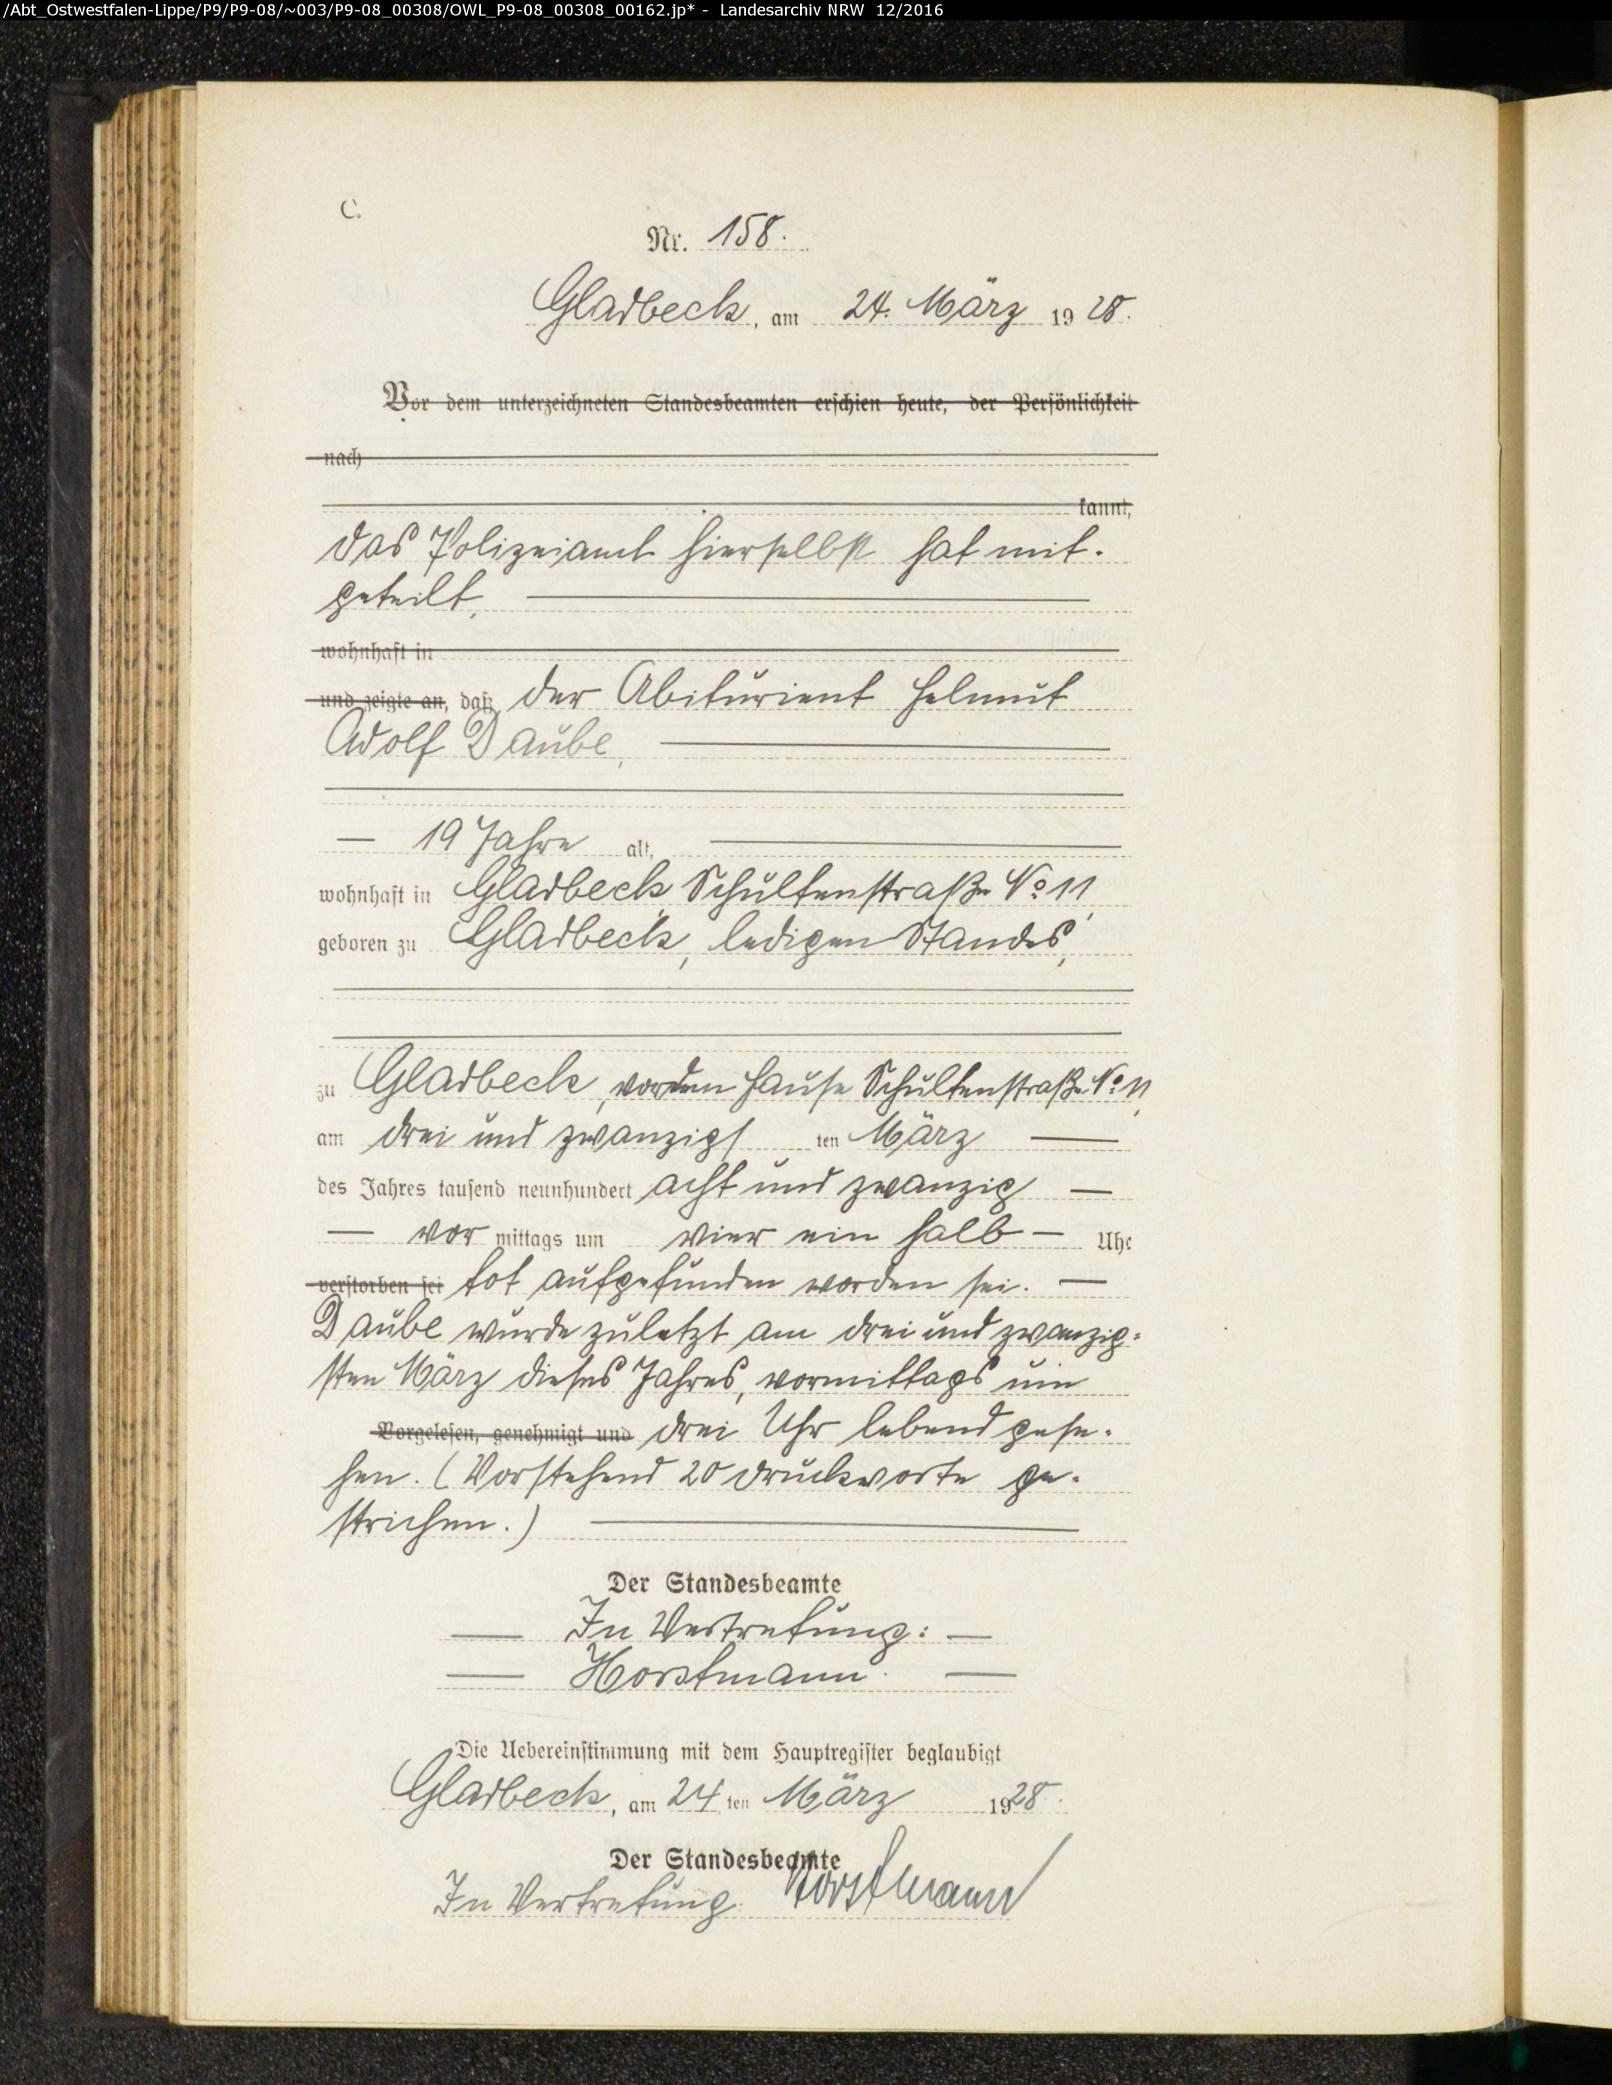 /Abt_Ostwestfalen-Lippe/P9/P9-08/~003/P9-08_00308/OWL_P9-08_00308_00162.jp* - Landesarchiv NRW 12/2016
C.
Nr. 158.
Gladbeck, am 24. März 1928.
Vor dem unterzeichneten Standesbeamten erschien heute, der Persönlichkeit
nach
kannt,
das Polizeiamt hierselbst hat mit-
geteilt,
wohnhaft in
und zeigte an, daß der Abiturient Helmut
Adolf Daube,
— 19 Jahre alt,
wohnhaft in Gladbeck, Schultenstraße No 11,
geboren zu Gladbeck, ledigen Standes,
zu Gladbeck, vor dem Hause Schultenstraße No 11,
am drei und zwanzigsten März —
des Jahres tausend neunhundert acht und zwanzig —
— vor mittags um vier ein halb — Uhr
verstorben sei tot aufgefunden worden sei. —
Daube wurde zuletzt am drei und zwanzig-
sten März dieses Jahres, vormittags um
Vorgelesen, genehmigt und drei Uhr lebend gese-
hen. (Vorstehend 20 Druckworte ge-
strichen.)
Der Standesbeamte
— In Vertretung: —
— Horstmann. —
Die Uebereinstimmung mit dem Hauptregister beglaubigt
Gladbeck, am 24ten März 1928.
Der Standesbeamte
In Vertretung: Horstmann